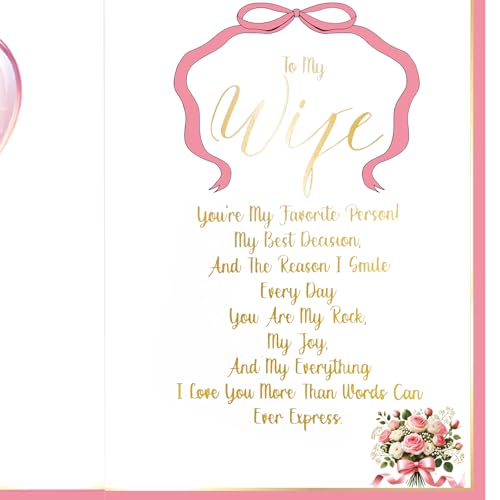 To My
Wife
You're My Favorite Person!
My Best Decision,
And The Reason I Smile
Every Day
You Are My Rock,
My Joy,
And My Everything
I Love You More Than Words Can
Ever Express.